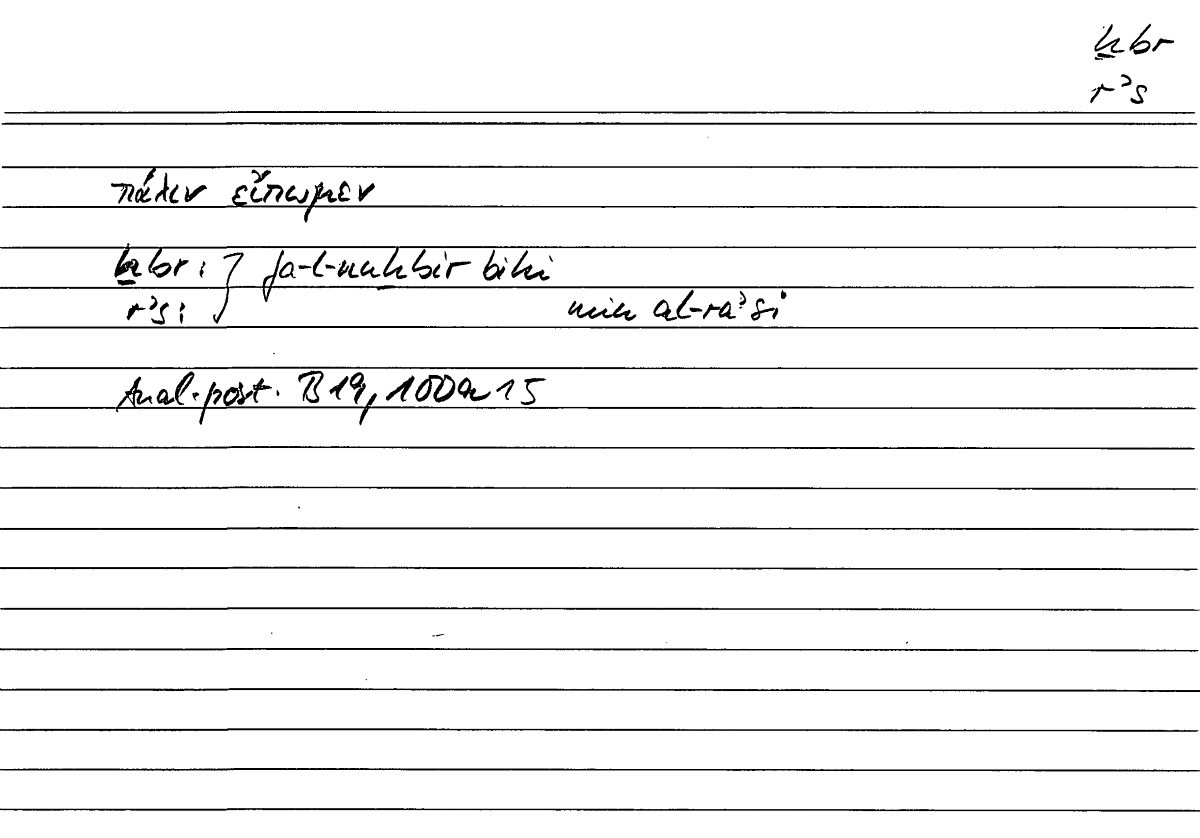 ḫbr
rʾs
πάλιν εἴπωμεν
ḫbr : } fa-l-nuḫbir bihi
rʾs : min al-raʾsi
Anal. post. B 19, 100a15